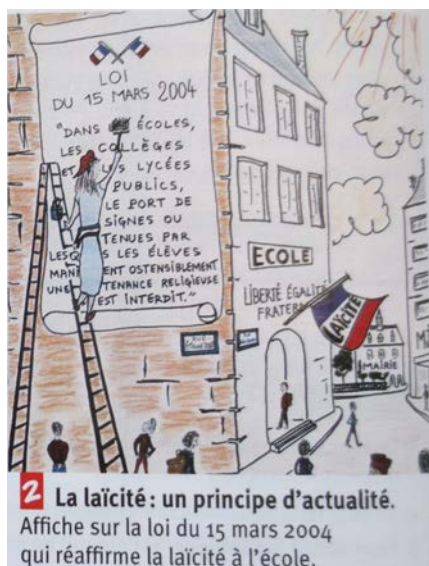 LOI
DU 15 MARS 2004
"DANS ÉCOLES,
LES COLLÈGES
ET LYCÉES
PUBLICS,
LE PORT DE
SIGNES OU
TENUES PAR
LES ÉLÈVES
OSTENSIBLEMENT
UNE RELIGIEUSE
EST INTERDIT."
ECOLE
LIBERTÉ ÉGALITÉ
FRATER
LAÏCITÉ
MAIRIE
2 La laïcité : un principe d'actualité.
Affiche sur la loi du 15 mars 2004
qui réaffirme la laïcité à l'école.